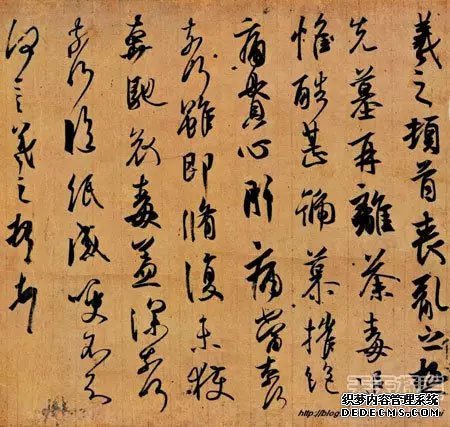 羲之頓首喪亂之極
先墓再離荼毒追
惟酷甚號慕摧絕
痛貫心肝痛當奈何
奈何雖即脩復未獲
奔馳哀毒益深奈何
奈何臨紙感哽不知
何言羲之頓首頓首
http://blog
织梦内容管理系统